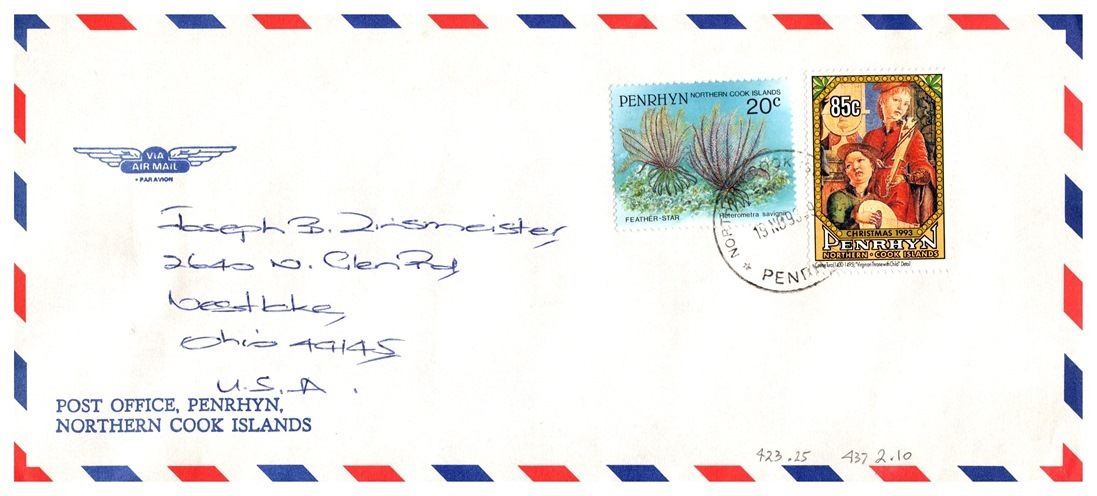 VIA
AIR MAIL
• PAR AVION
PENRHYN NORTHERN COOK ISLANDS
20c
FEATHER-STAR Heterometra savignii
85c
CHRISTMAS 1993
PENRHYN
NORTHERN • COOK ISLANDS
"Virgin on Throne with Child" Detail
COOK
19 NO 93
PEN
Joseph B. Zinsmeister
2640 N. Glen Rd
Westlake,
Ohio 44145
U.S.A.
POST OFFICE, PENRHYN,
NORTHERN COOK ISLANDS
423.25 437 2.10